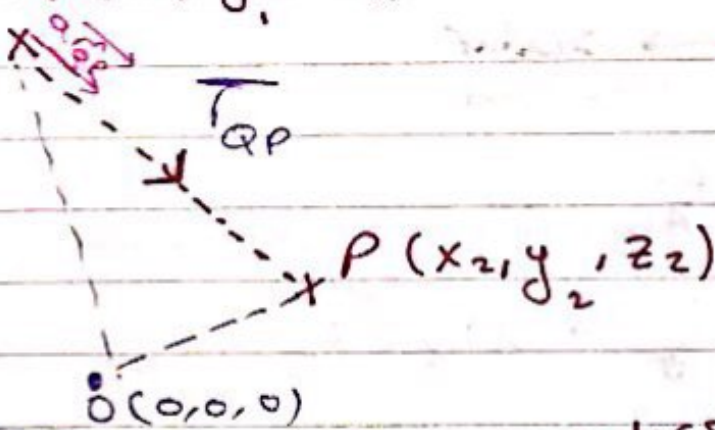 r̅QP
P (x₂, y₂, z₂)
O (0,0,0)